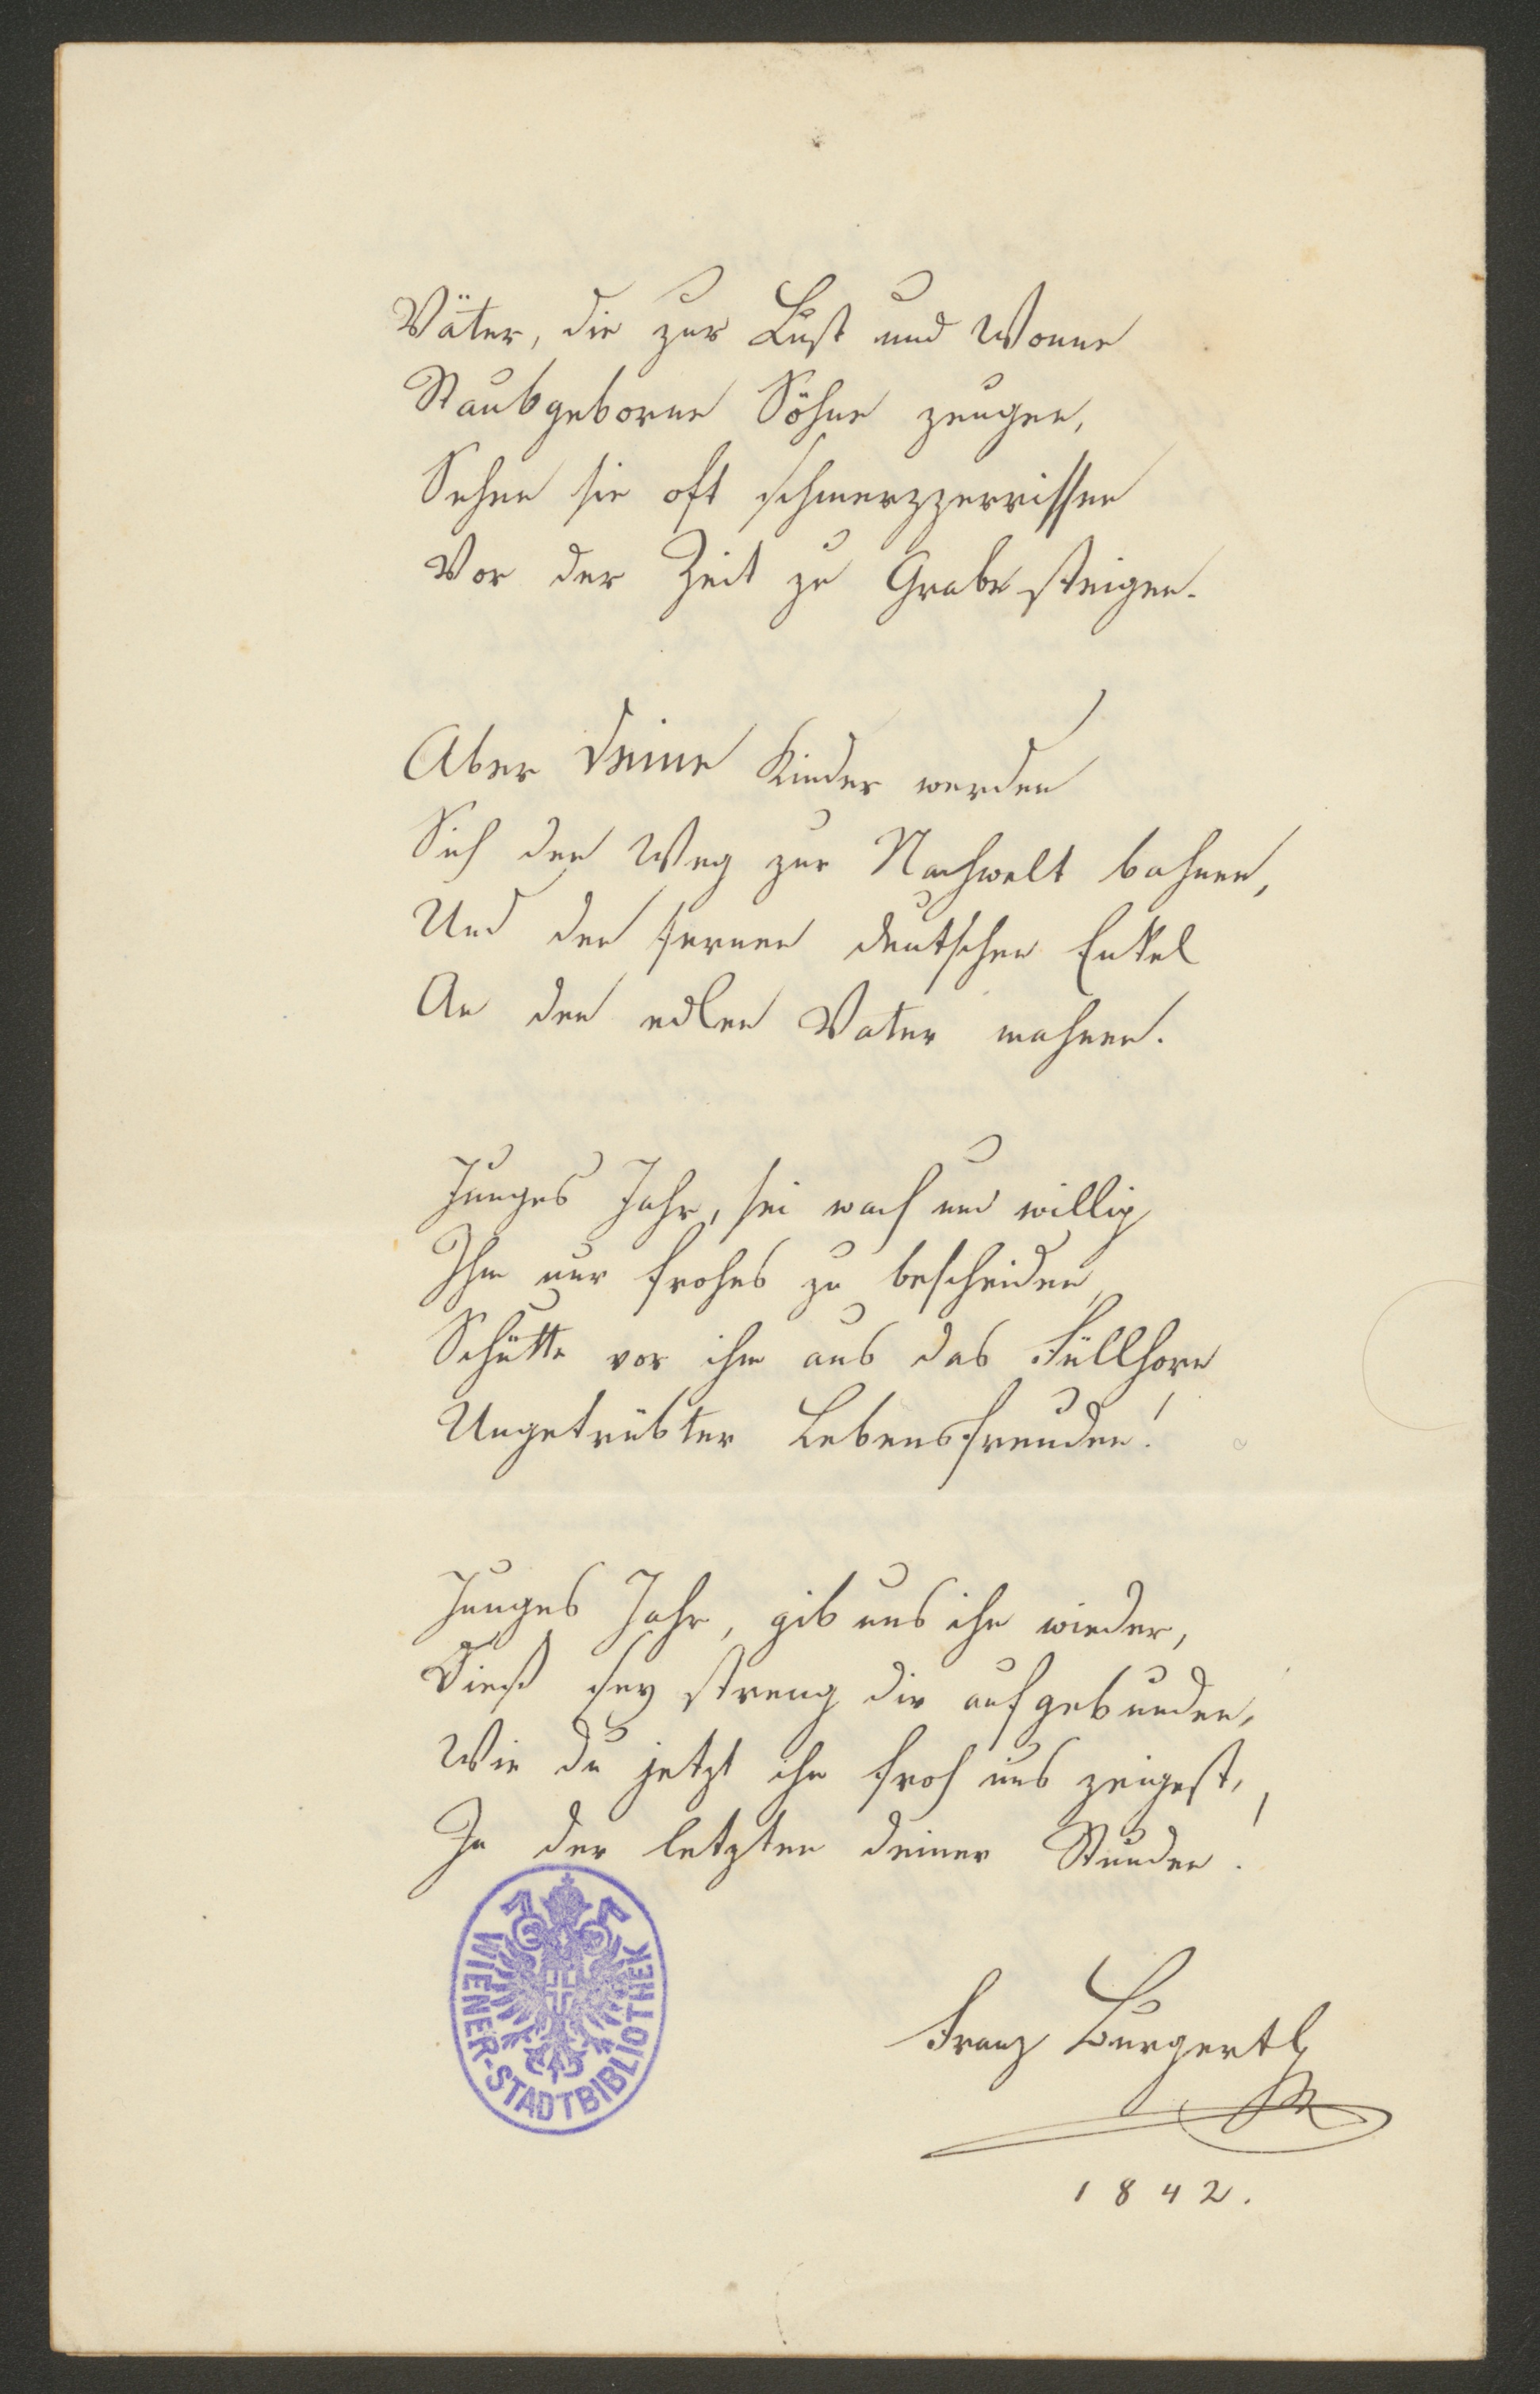 Väter, die zur Lust und Wonne
Staubgeborne Söhne zeugen,
Sehen sie oft schmerzzerrissen
Vor der Zeit zu Grabe steigen.
Aber Deine Kinder werden
Sich den Weg zur Nachwelt bahnen,
Und den fernen deutschen Enkel
An den edlen Vater mahnen.
Junges Jahr, sei wach und willig
Ihm nur frohes zu bescheiden,
Schütte vor ihm aus das Füllhorn
Ungetrübter Lebensfreuden!
Junges Jahr, gib uns ihn wieder,
Dieß sey streng dir aufgebunden,
Wie du jetzt ihn froh uns zeigest,
In der letzten deiner Stunden!
WIENER-STADTBIBLIOTHEK
Franz Burgerth
1842.